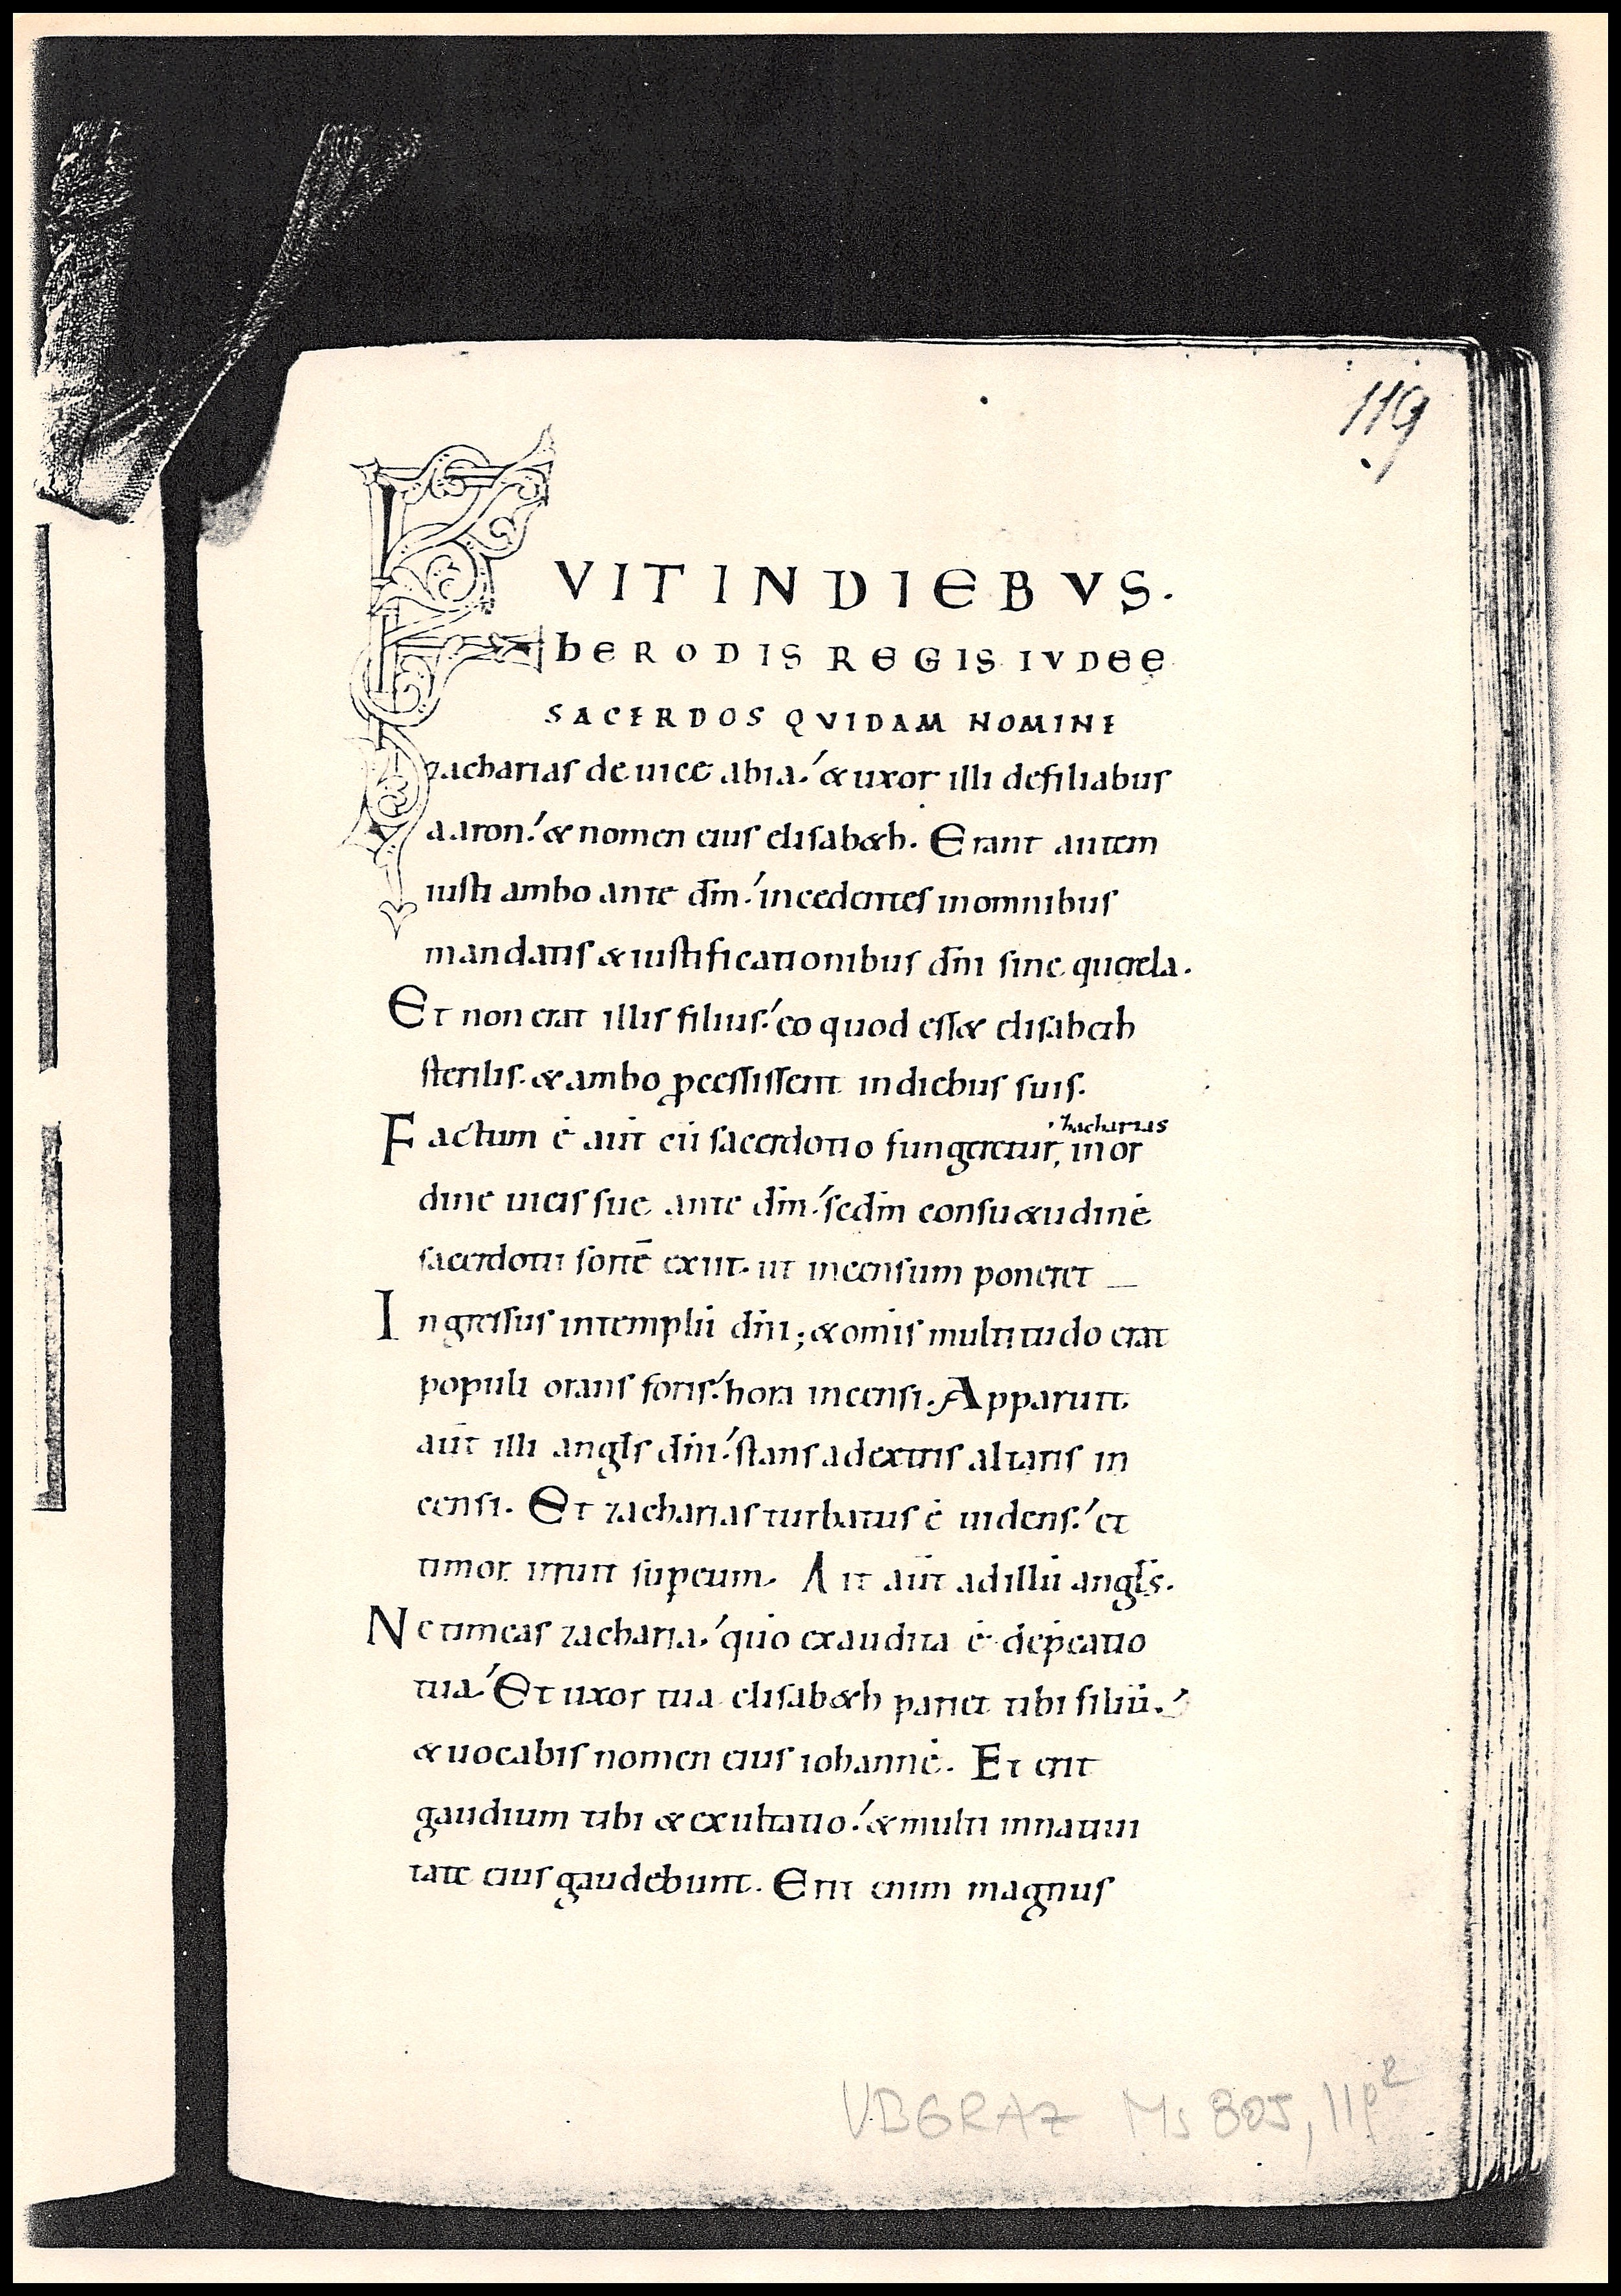 119
FVIT IN DIEBVS.
hERODIS REGIS IVDEE
SACERDOS QVIDAM NOMINE
zacharias de uice abia. & uxor illi defiliabus
aaron. & nomen eius elisab&h. Erant autem
iusti ambo ante dm̄. incedentes inomnibus
mandatis & iustificationibus dn̄i sine querela.
Et non erat illis filius. eo quod ess& elisabeth
sterilis. & ambo ꝓcessissent indiebus suis.
zacharias
Factum ē aūt cū sacerdotio fungeretur, inor
dine uicis sue ante dm̄. scdm̄ consu&udinē
sacerdotii sortē exiit. ut incensum poneret
Ingressus intemplū dn̄i; & om̄is multitudo erat
populi orans foris. hora incensi. Apparuit
aūt illi angls dn̄i. stans adextris altaris in
censi. Et zacharias turbatus ē uidens. et
timor irruit suꝑeum. Ait aūt adillū angls.
Ne timeas zacharia. quō exaudita ē dep̄catio
tua. Et uxor tua elisab&h pariet tibi filiū.
& uocabis nomen eius iohannē. Et erit
gaudium tibi & exultatio. & multi innatiui
tate eius gaudebunt. Erit enim magnus
UBGRAZ Ms 805, 119R